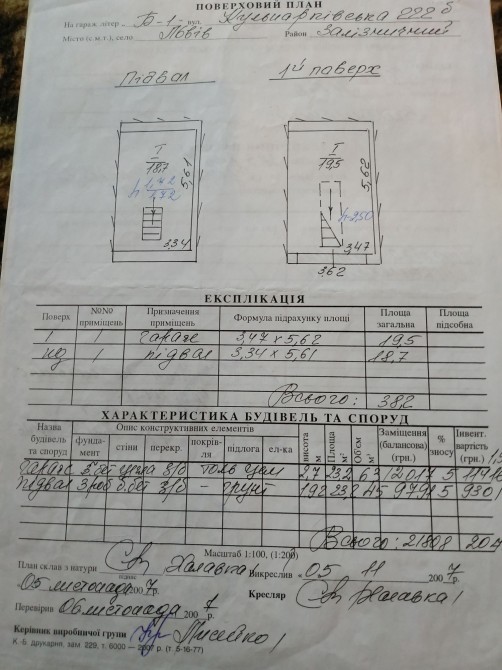 ПОВЕРХОВИЙ ПЛАН
На гараж літер. Б-1- вул. Кульпарківська 222 б
Місто (с.м.т.), село Львів Район Залізничний
Підвал 1й поверх
I I
18,7 19,5
5,61 5,62
h-2,50
3,34 3,47
3,62
ЕКСПЛІКАЦІЯ
Поверх №№ приміщень Призначення приміщень Формула підрахунку площі Площа загальна Площа підсобна
1 1 гараж 3,47 x 5,62 19,5
1 підвал 3,34 x 5,61 18,7
Всього: 38,2
ХАРАКТЕРИСТИКА БУДІВЕЛЬ ТА СПОРУД
Назва будівель та споруд Опис конструктивних елементів висота м Площа м² Об'єм м³ Заміщення (балансова) (грн.) % зносу Інвент. вартість (грн.)
фунда-мент стіни перекр. покрів-ля підлога ел-ка
гараж з/б толь цем 2,7 23,2 63 12017 5
підвал з/б - грунт 1,92 23,2 45 9791 5 930
Всього: 21808
Масштаб 1:100, (1:200)
План склав з натури Халавка Викреслив 05 11 2007р.
05 листопада 2007р. Кресляр Халавка
Перевірив 06 листопада 2007р.
Керівник виробничої групи
К.-Б. друкарня, зам. 229, т. 6000 — 2007 р. (т. 5-16-77)